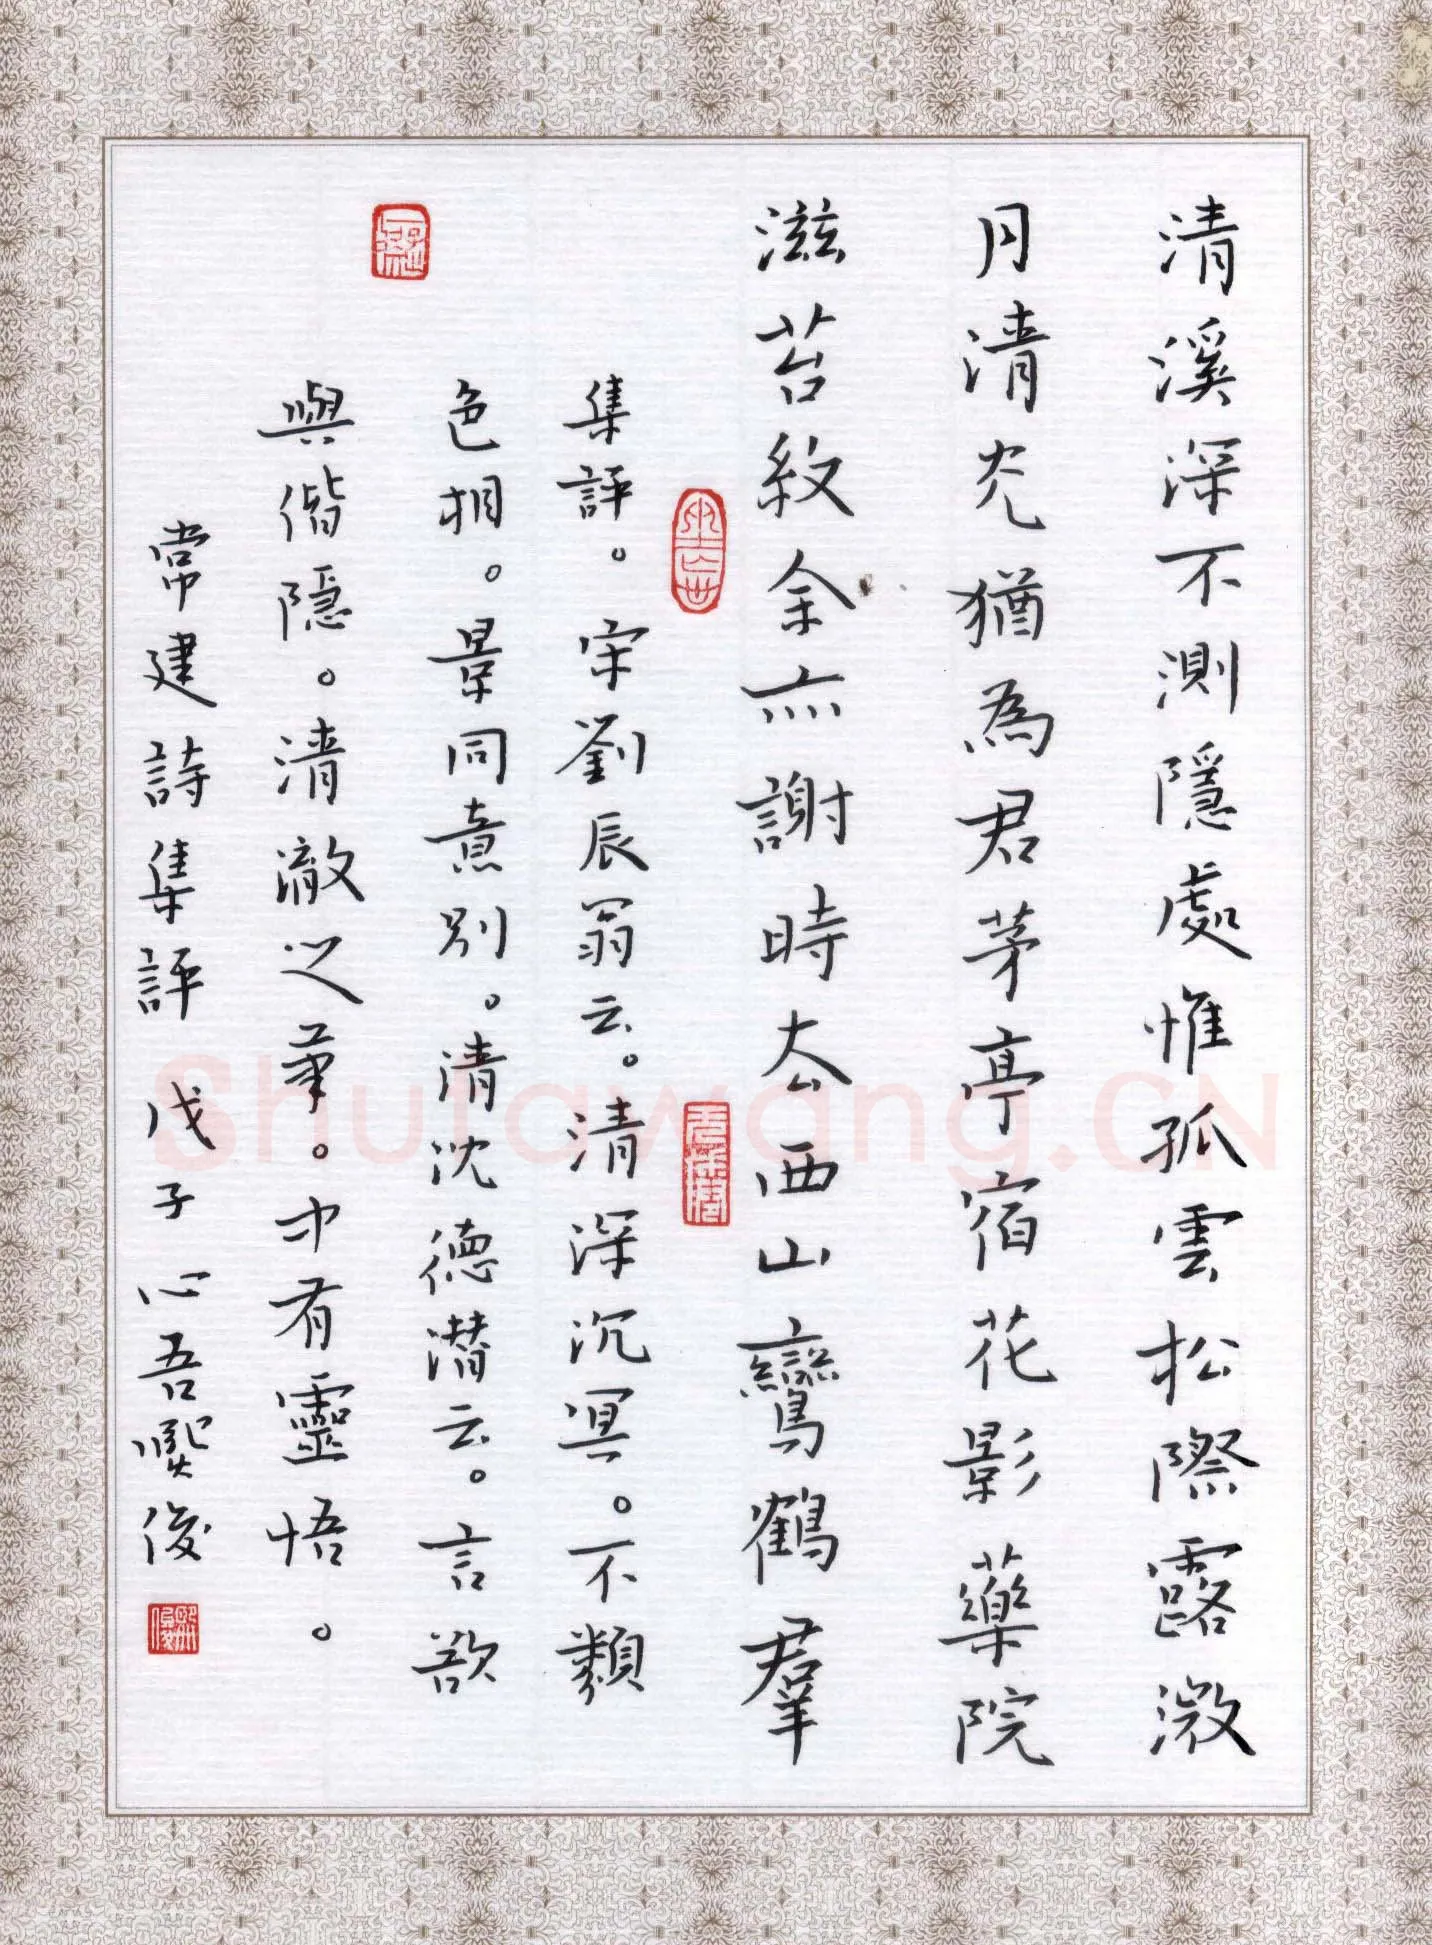 清溪深不測隱處惟孤雲松際露澂
月清光猶為君茅亭宿花影藥院
滋苔紋余亦謝時去西山鸞鶴羣
集評。宋劉辰翁云。清深沉冥。不類
色相。景同意別。清沈德潛云。言欲
與偕隱。清澈之筆。中有靈悟。
常建詩集評 戊子心吾熙俊
Shufawang.CN